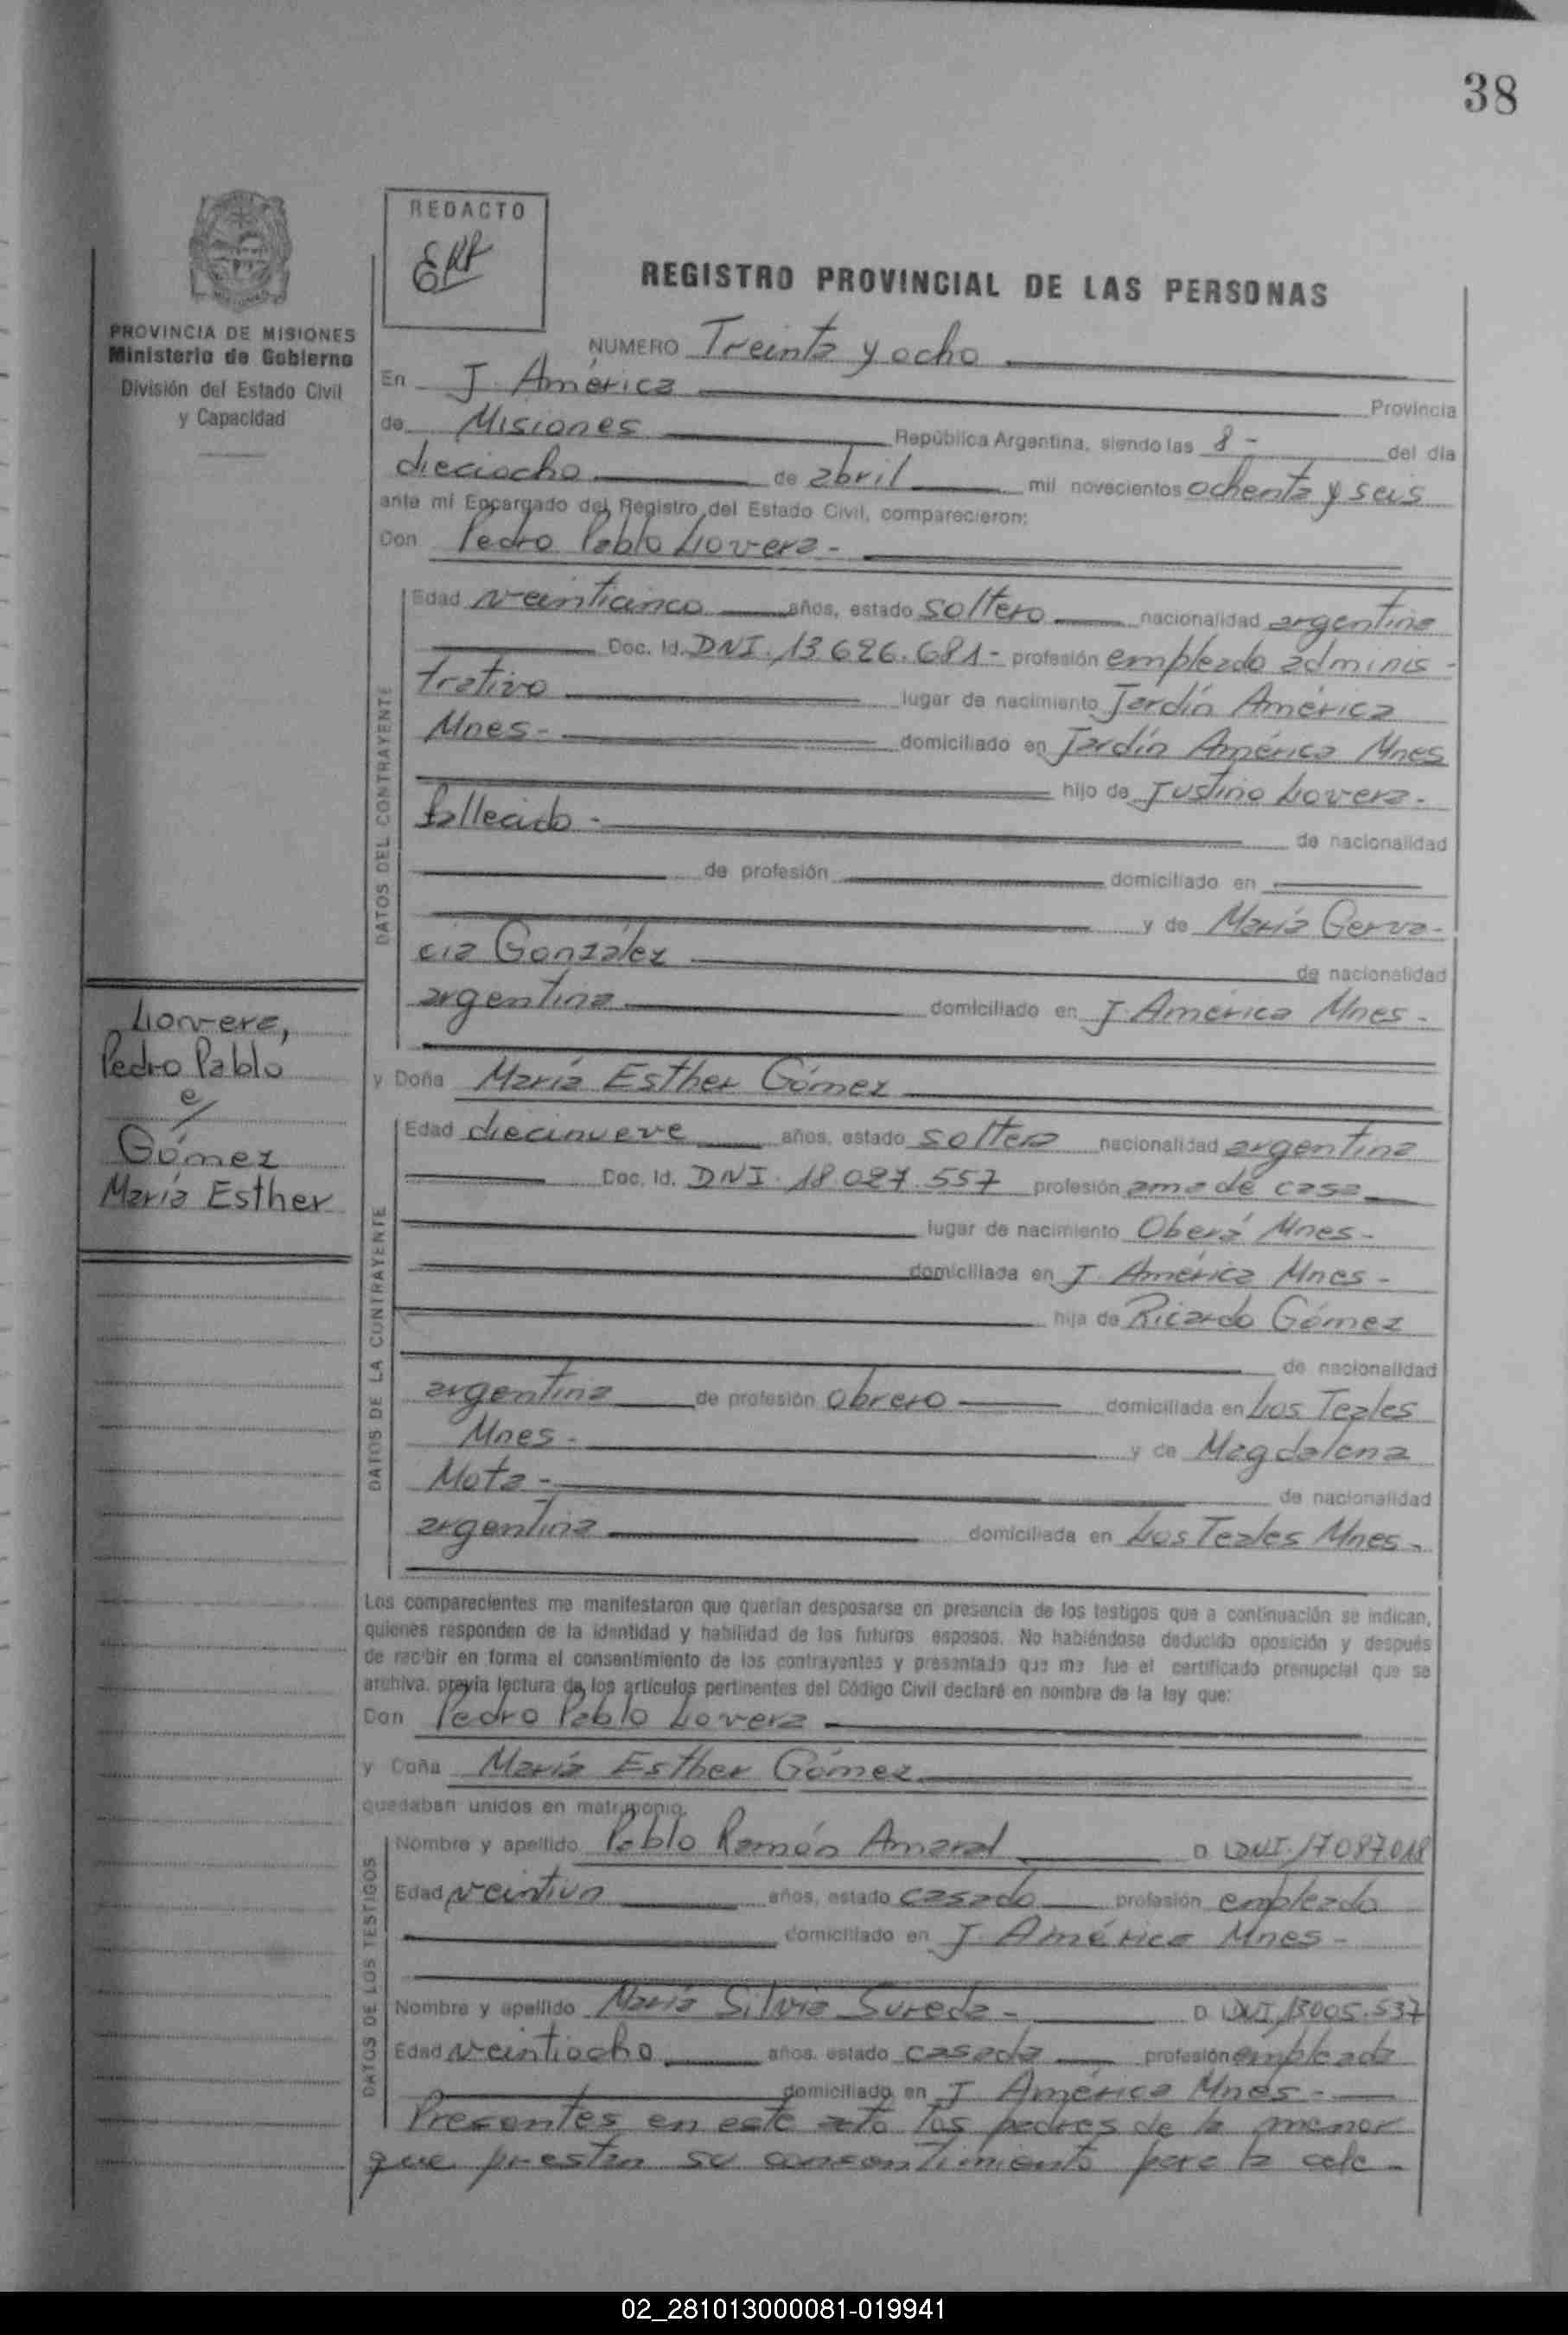 38
REDACTO
REGISTRO PROVINCIAL DE LAS PERSONAS
PROVINCIA DE MISIONES
Ministerio de Gobierno
División del Estado Civil
y Capacidad
NUMERO Treinta y ocho
En J. América Provincia
de Misiones República Argentina, siendo las 8 - del día
dieciocho de abril mil novecientos ochenta y seis
ante mi Encargado del Registro del Estado Civil, comparecieron:
Don Pedro Pablo Lovera -
DATOS DEL CONTRAYENTE
Edad veinticinco años, estado soltero nacionalidad argentina
Doc. Id. DNI. 13.626.681 - profesión empleado adminis -
trativo lugar de nacimiento Jardín América
Mnes - domiciliado en Jardín América Mnes
hijo de Justino Lovera -
fallecido - de nacionalidad
de profesión domiciliado en
y de María Gerva-
cia González de nacionalidad
argentina domiciliado en J. América Mnes -
Lovera,
Pedro Pablo
c/
Gómez
María Esther
y Doña María Esther Gómez
DATOS DE LA CONTRAYENTE
Edad diecinueve años, estado soltera nacionalidad argentina
Doc. Id. DNI. 18.027.557 profesión ama de casa
lugar de nacimiento Oberá Mnes -
domiciliada en J. América Mnes -
hija de Ricardo Gómez
de nacionalidad
argentina de profesión obrero domiciliada en Los Teales
Mnes - y de Magdalena
Mota - de nacionalidad
argentina domiciliada en Los Teales Mnes -
Los comparecientes me manifestaron que querían desposarse en presencia de los testigos que a continuación se indican,
quienes responden de la identidad y habilidad de los futuros esposos. No habiéndose deducido oposición y después
de recibir en forma el consentimiento de los contrayentes y presentado que me fue el certificado prenupcial que se
archiva, previa lectura de los artículos pertinentes del Código Civil declaré en nombre de la ley que:
Don Pedro Pablo Lovera
y Doña María Esther Gómez
quedaban unidos en matrimonio.
DATOS DE LOS TESTIGOS
Nombre y apellido Pablo Ramón Amaral D. I. DNI. 17087018
Edad veintiun años, estado casado profesión empleado
domiciliado en J. América Mnes -
Nombre y apellido María Silvia Sureda - D. I. DNI. 13005.537
Edad veintiocho años, estado casada profesión empleada
domiciliado en J. América Mnes -
Presentes en este acto los padres de la menor
que prestan su consentimiento para la cele -
02_281013000081-019941